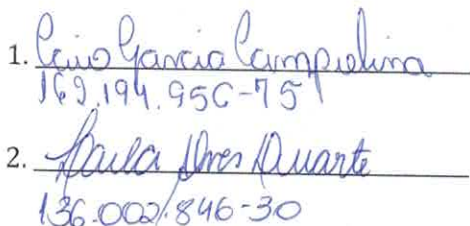 1. Caio Garcia Campolina
169.194.956-75
2. Paula Alves Duarte
136.002.846-30